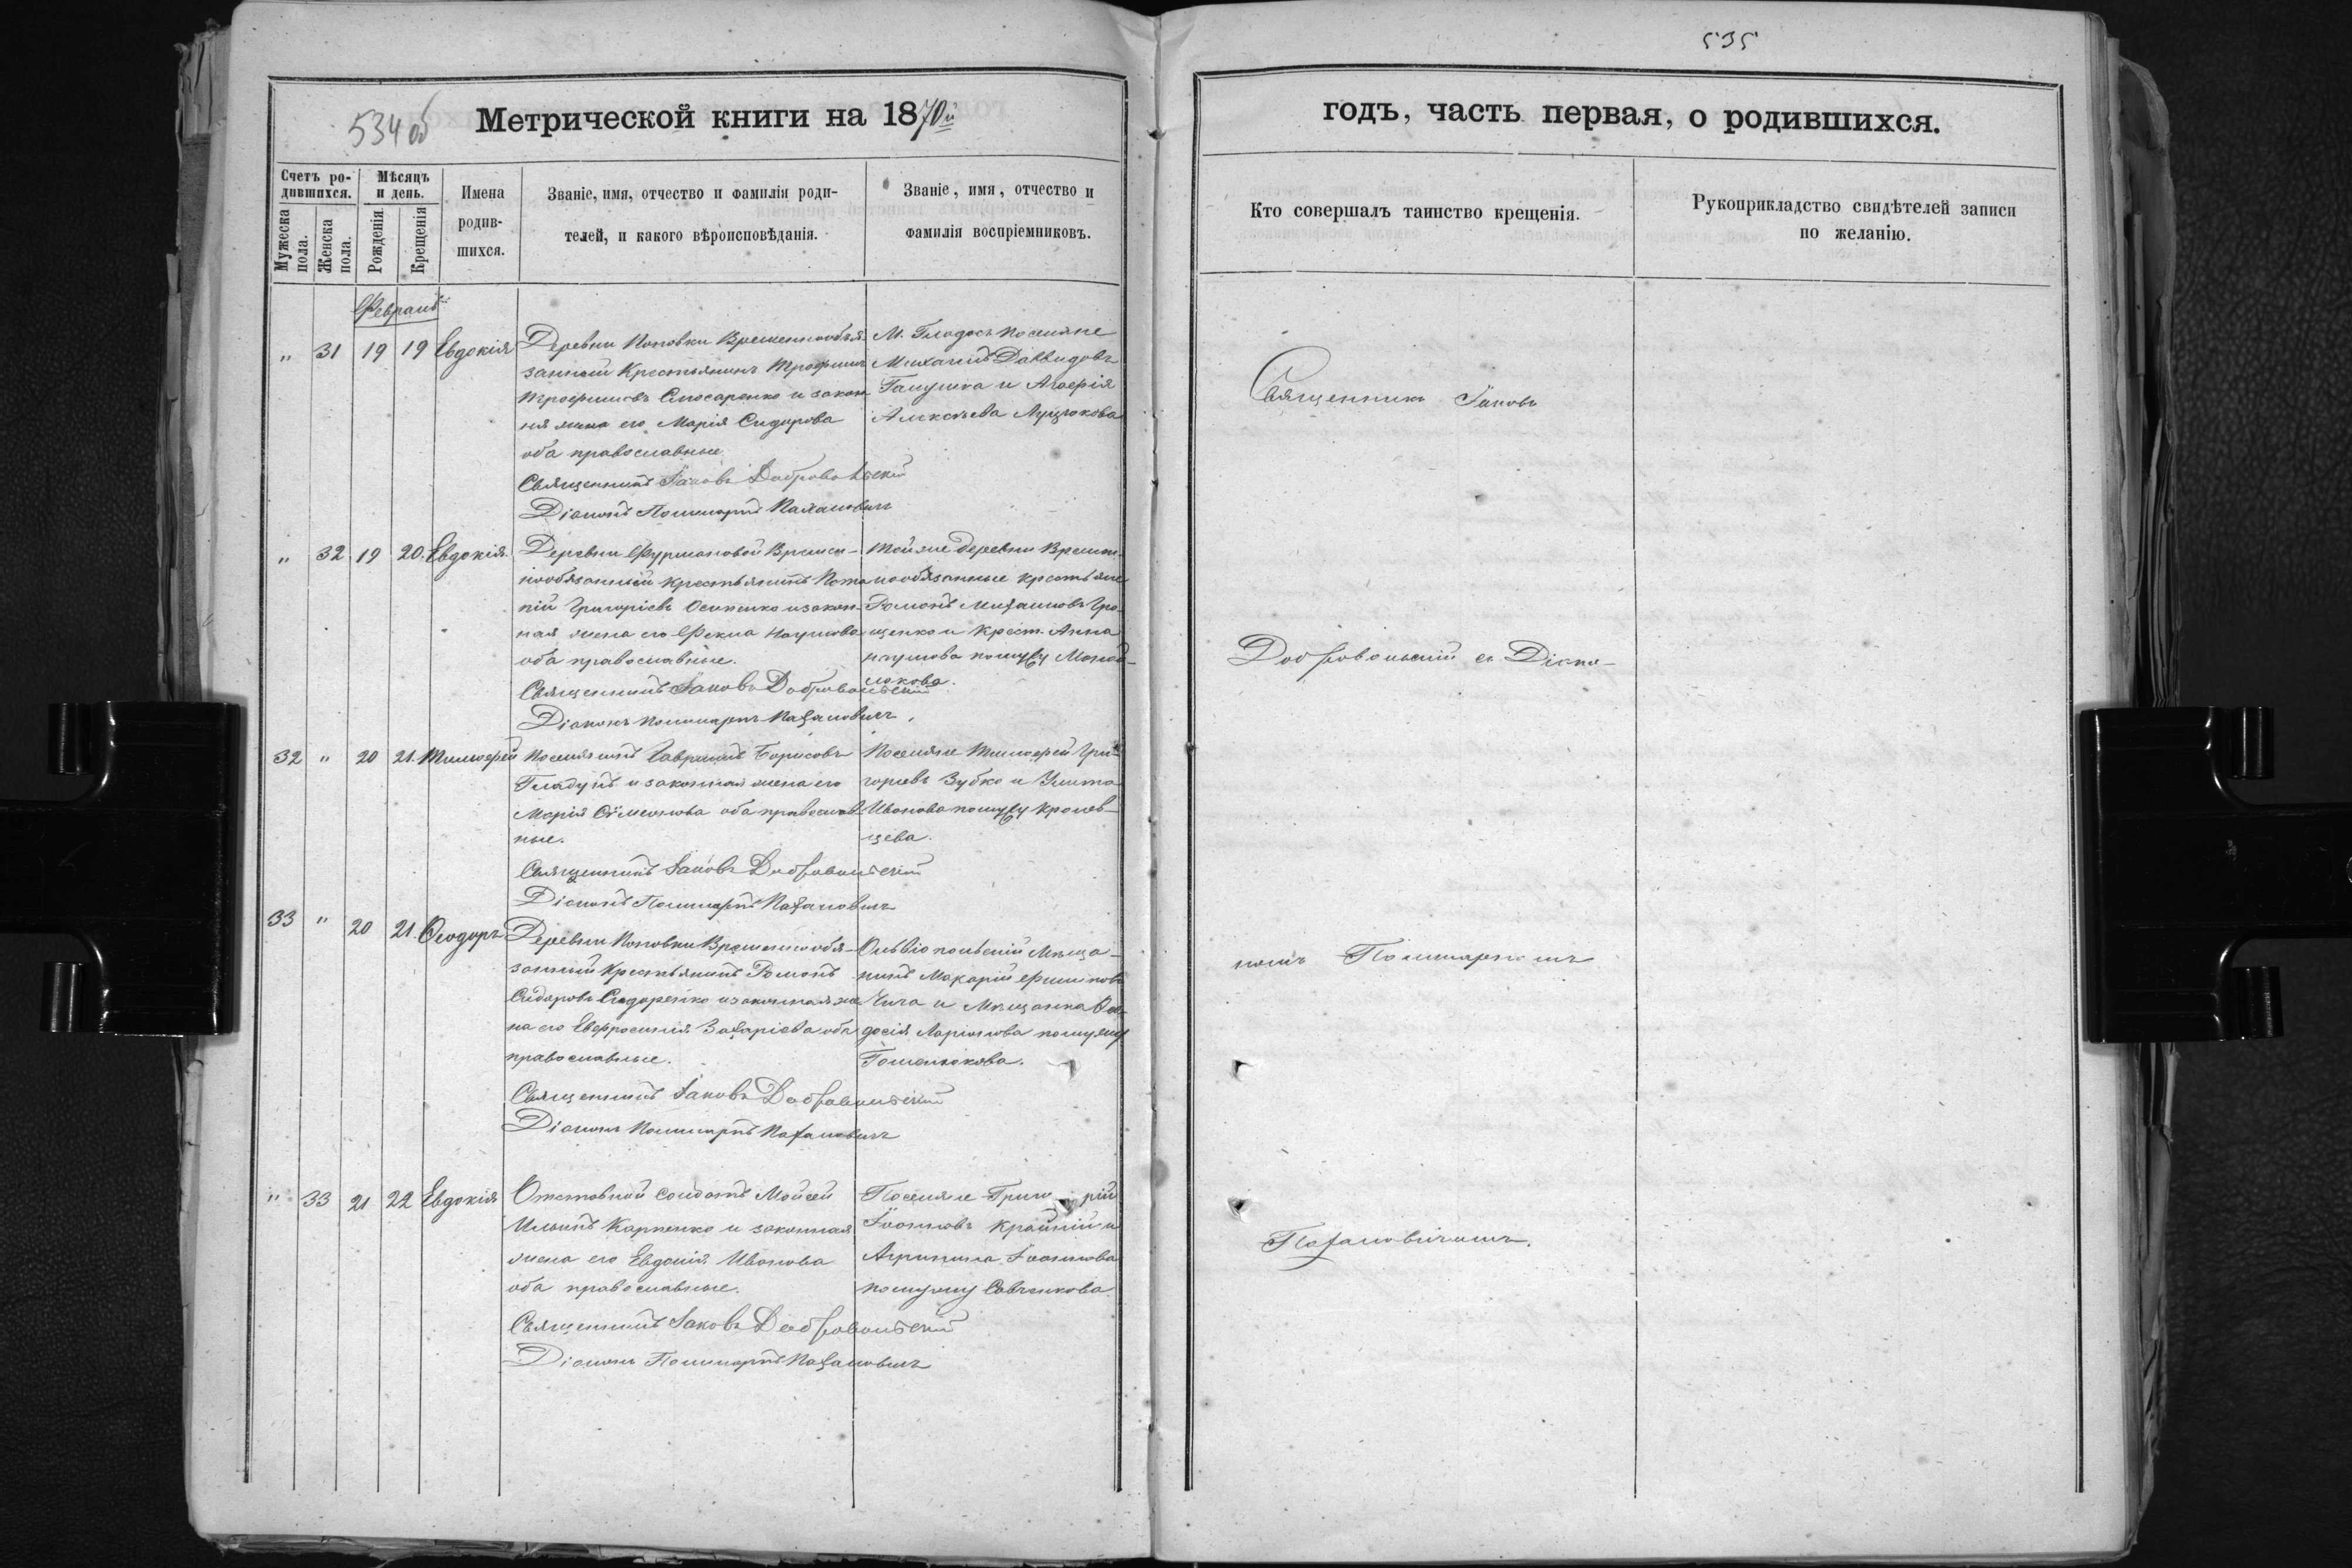 534 об
Метрической книги на 1870й
Счетъ ро-
дившихся.
Мужеска
пола.
Женска
пола.
Мѣсяцъ
и день.
Рожденія.
Крещенія
Имена
родив-
шихся.
Званіе, имя, отчество и фамилія роди-
телей, и какого вѣроисповѣданія.
Званіе, имя, отчество и
фамилія воспріемниковъ.
Февраль
" 31 19 19 Евдокія
Деревни Поповки Временнообя-
занный Крестьянинъ Трофимъ
Трофимовъ Слюсаренко и закон
ня жена его Марія Сидорова
оба православные.
Священникъ Іаковъ Добровольскій
Діаконъ Пономарь
М. Гладосъ поселяне
Михаилъ Даввидовъ
Галушка и Агафія
Алексѣева
" 32 19 20. Евдокія.
Деревни Фурмановой Времен-
нообязанный крестьянинъ Пота
пій Григоріевъ Осипенко и закон-
ная жена его Фекла Наумова
оба православные.
Священникъ Іаковъ Добровольскій
Діаконъ Пономарь
Той же деревни Времен-
нообязанные крестьяне
Романъ Михаиловъ Гро-
щенко и крест. Анна
Наумова по мужу
32 " 20 21. Тимофей
Поселянинъ Гавріилъ Борисовъ
Гладунъ и законная жена его
Марія Сѵмеонова оба православ-
ные.
Священникъ Іаковъ Добровольскій
Діаконъ Пономарь
Поселяне Тимофей Гри-
горьевъ Зубко и Улита
Иванова по мужу Кролев-
цева.
33 " 20 21. Ѳеодоръ
Деревни Поповки Временнообя-
занный Крестьянинъ Романъ
Сидоровъ Сидоренко и законная же
на его Евфросинія Захаріева оба
православные.
Священникъ Іаковъ Добровольскій
Діаконъ Пономарь
Ольвіопольскій Мѣща-
нинъ Макарій
и Мѣщанка Ѳео-
досія Ларіонова по мужу
" 33 21 22 Евдокія
Отставной солдатъ Мойсей
Ильинъ Карпенко и законная
жена его Евдокія Иванова
оба православные.
Священникъ Іаковъ Добровольскій
Діаконъ Пономарь
Поселяне Григорій
Іоанновъ Крайній и
Агрипина Іоаннова
по мужу Савченкова
535
годъ, часть первая, о родившихся.
Кто совершалъ таинство крещенія.
Рукоприкладство свидѣтелей записи
по желанію.
Священникъ Іаковъ
Добровольскій съ Діако-
номъ Пономаремъ